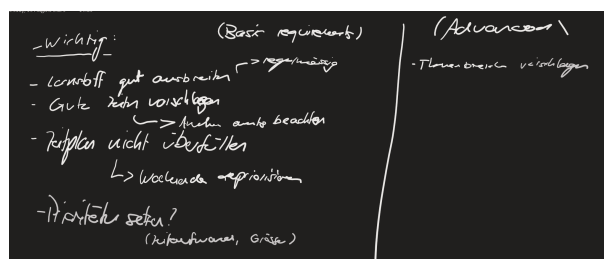 - Wichtig:
(Basic requirements)
- Lernstoff gut ausbreiten
-> regelmässig
- Gute Zeiten vorschlagen
-> beachten
- Zeitplan nicht überfüllen
-> Wochenende
- Prioritäten setzen?
(Zeitaufwand, Grösse)
(Advanced)
- Themenbereich vorschlagen